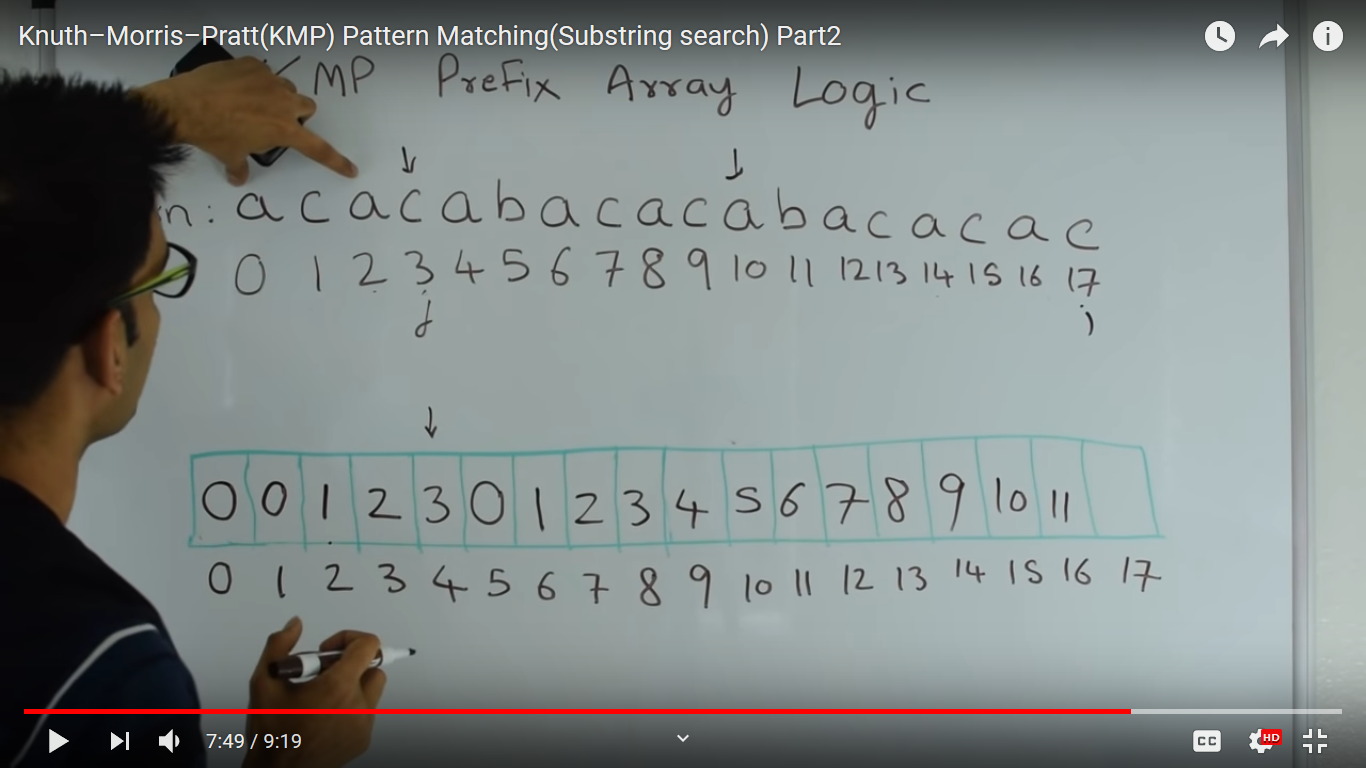 Knuth–Morris–Pratt(KMP) Pattern Matching(Substring search) Part2
KMP Prefix Array Logic
n: a c a c a b a c a c a b a c a c a c
0 1 2 3 4 5 6 7 8 9 10 11 12 13 14 15 16 17
j i
0 0 1 2 3 0 1 2 3 4 5 6 7 8 9 10 11
0 1 2 3 4 5 6 7 8 9 10 11 12 13 14 15 16 17
7:49 / 9:19
CC HD